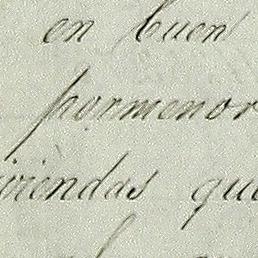 en buen
pormenor
viviendas que